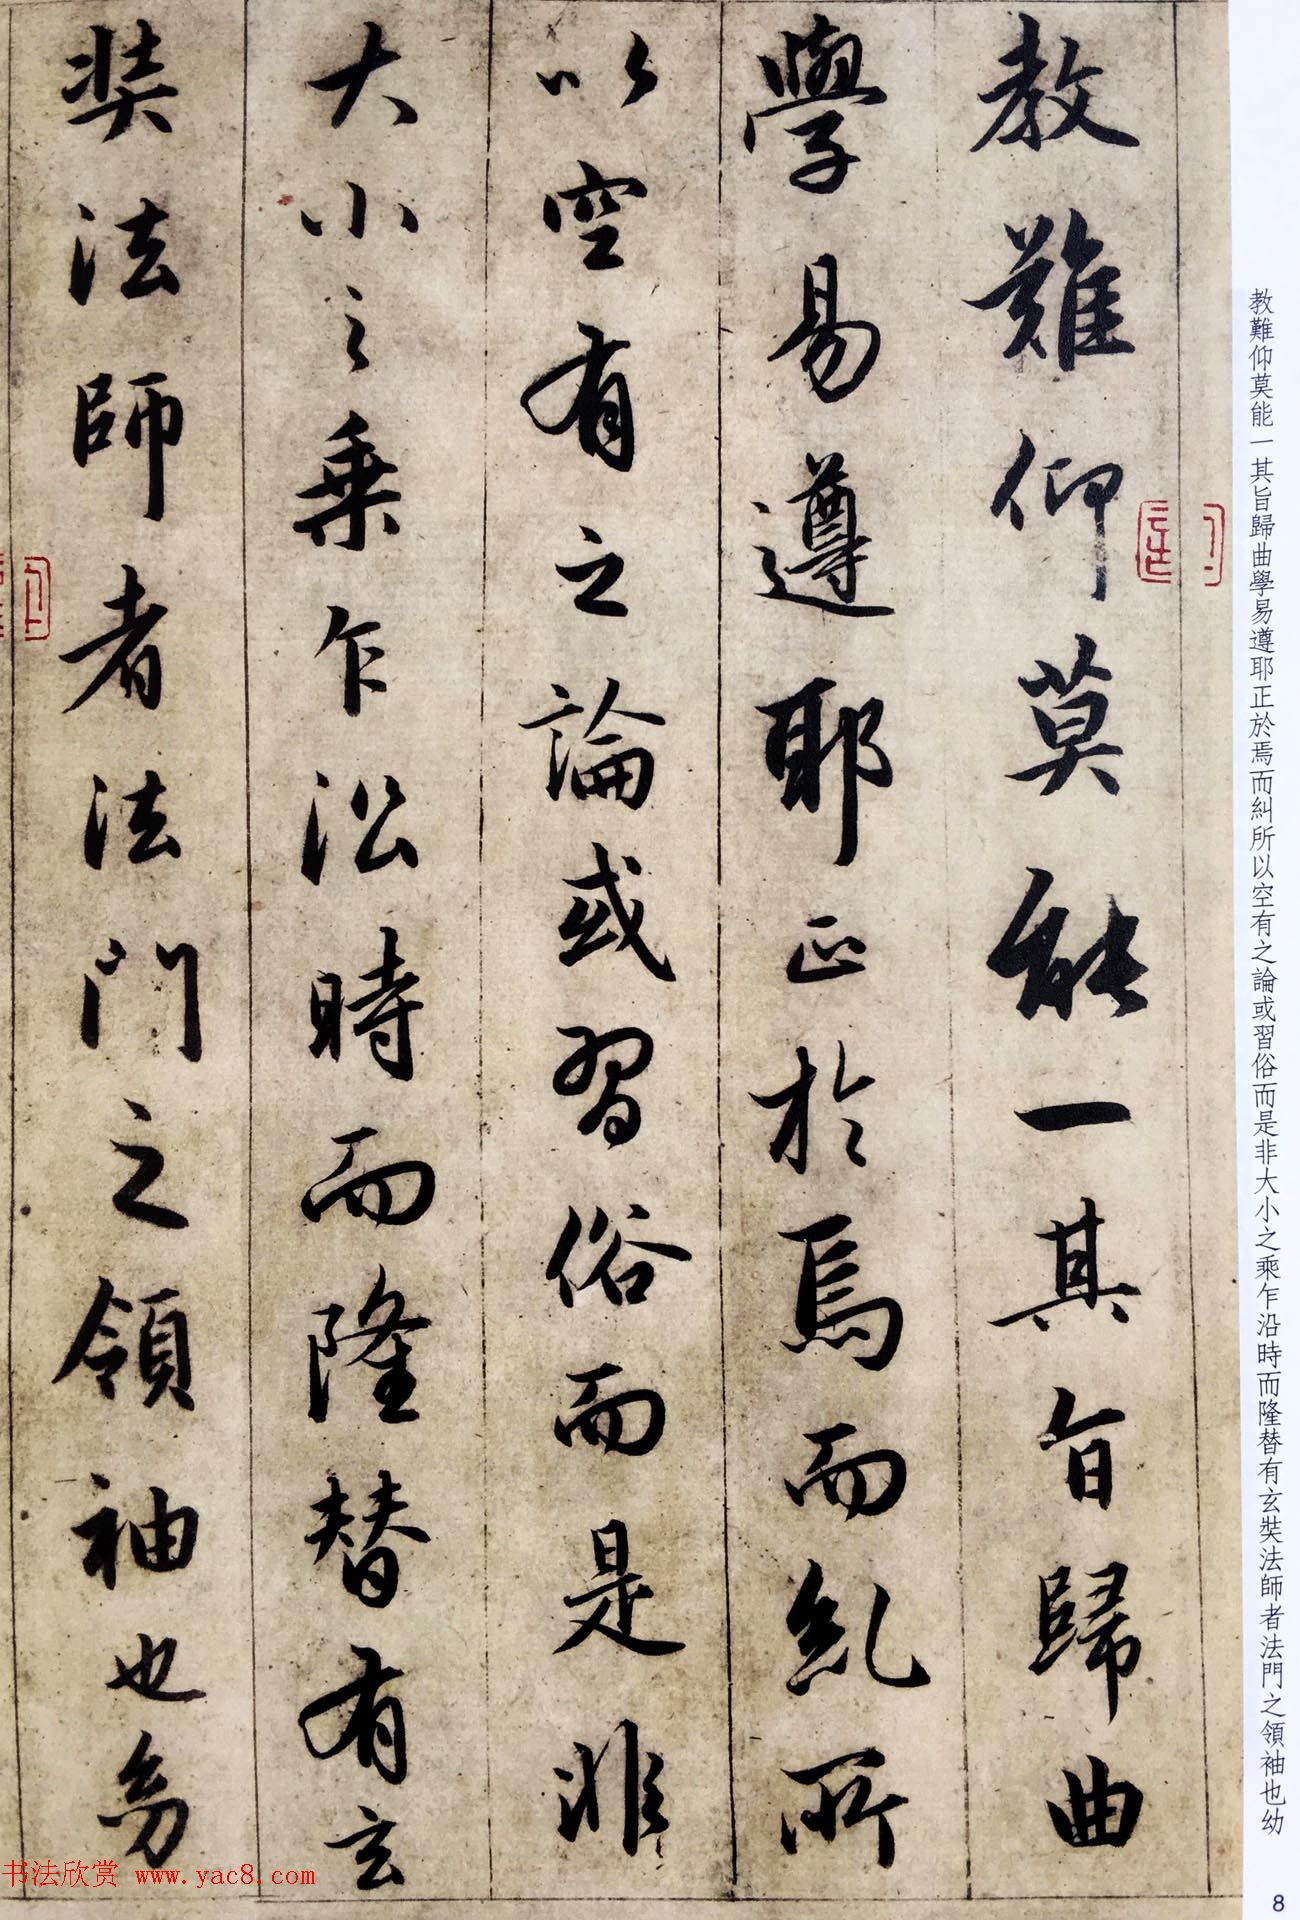 教難仰莫能一其旨歸曲
學易遵耶正於焉而糺所
以空有之論或習俗而是非
大小之乘乍沿時而隆替有玄
奘法師者法門之領袖也幼
教難仰莫能一其旨歸曲學易遵耶正於焉而糾所以空有之論或習俗而是非大小之乘乍沿時而隆替有玄奘法師者法門之領袖也幼
书法欣赏 www.yac8.com
8